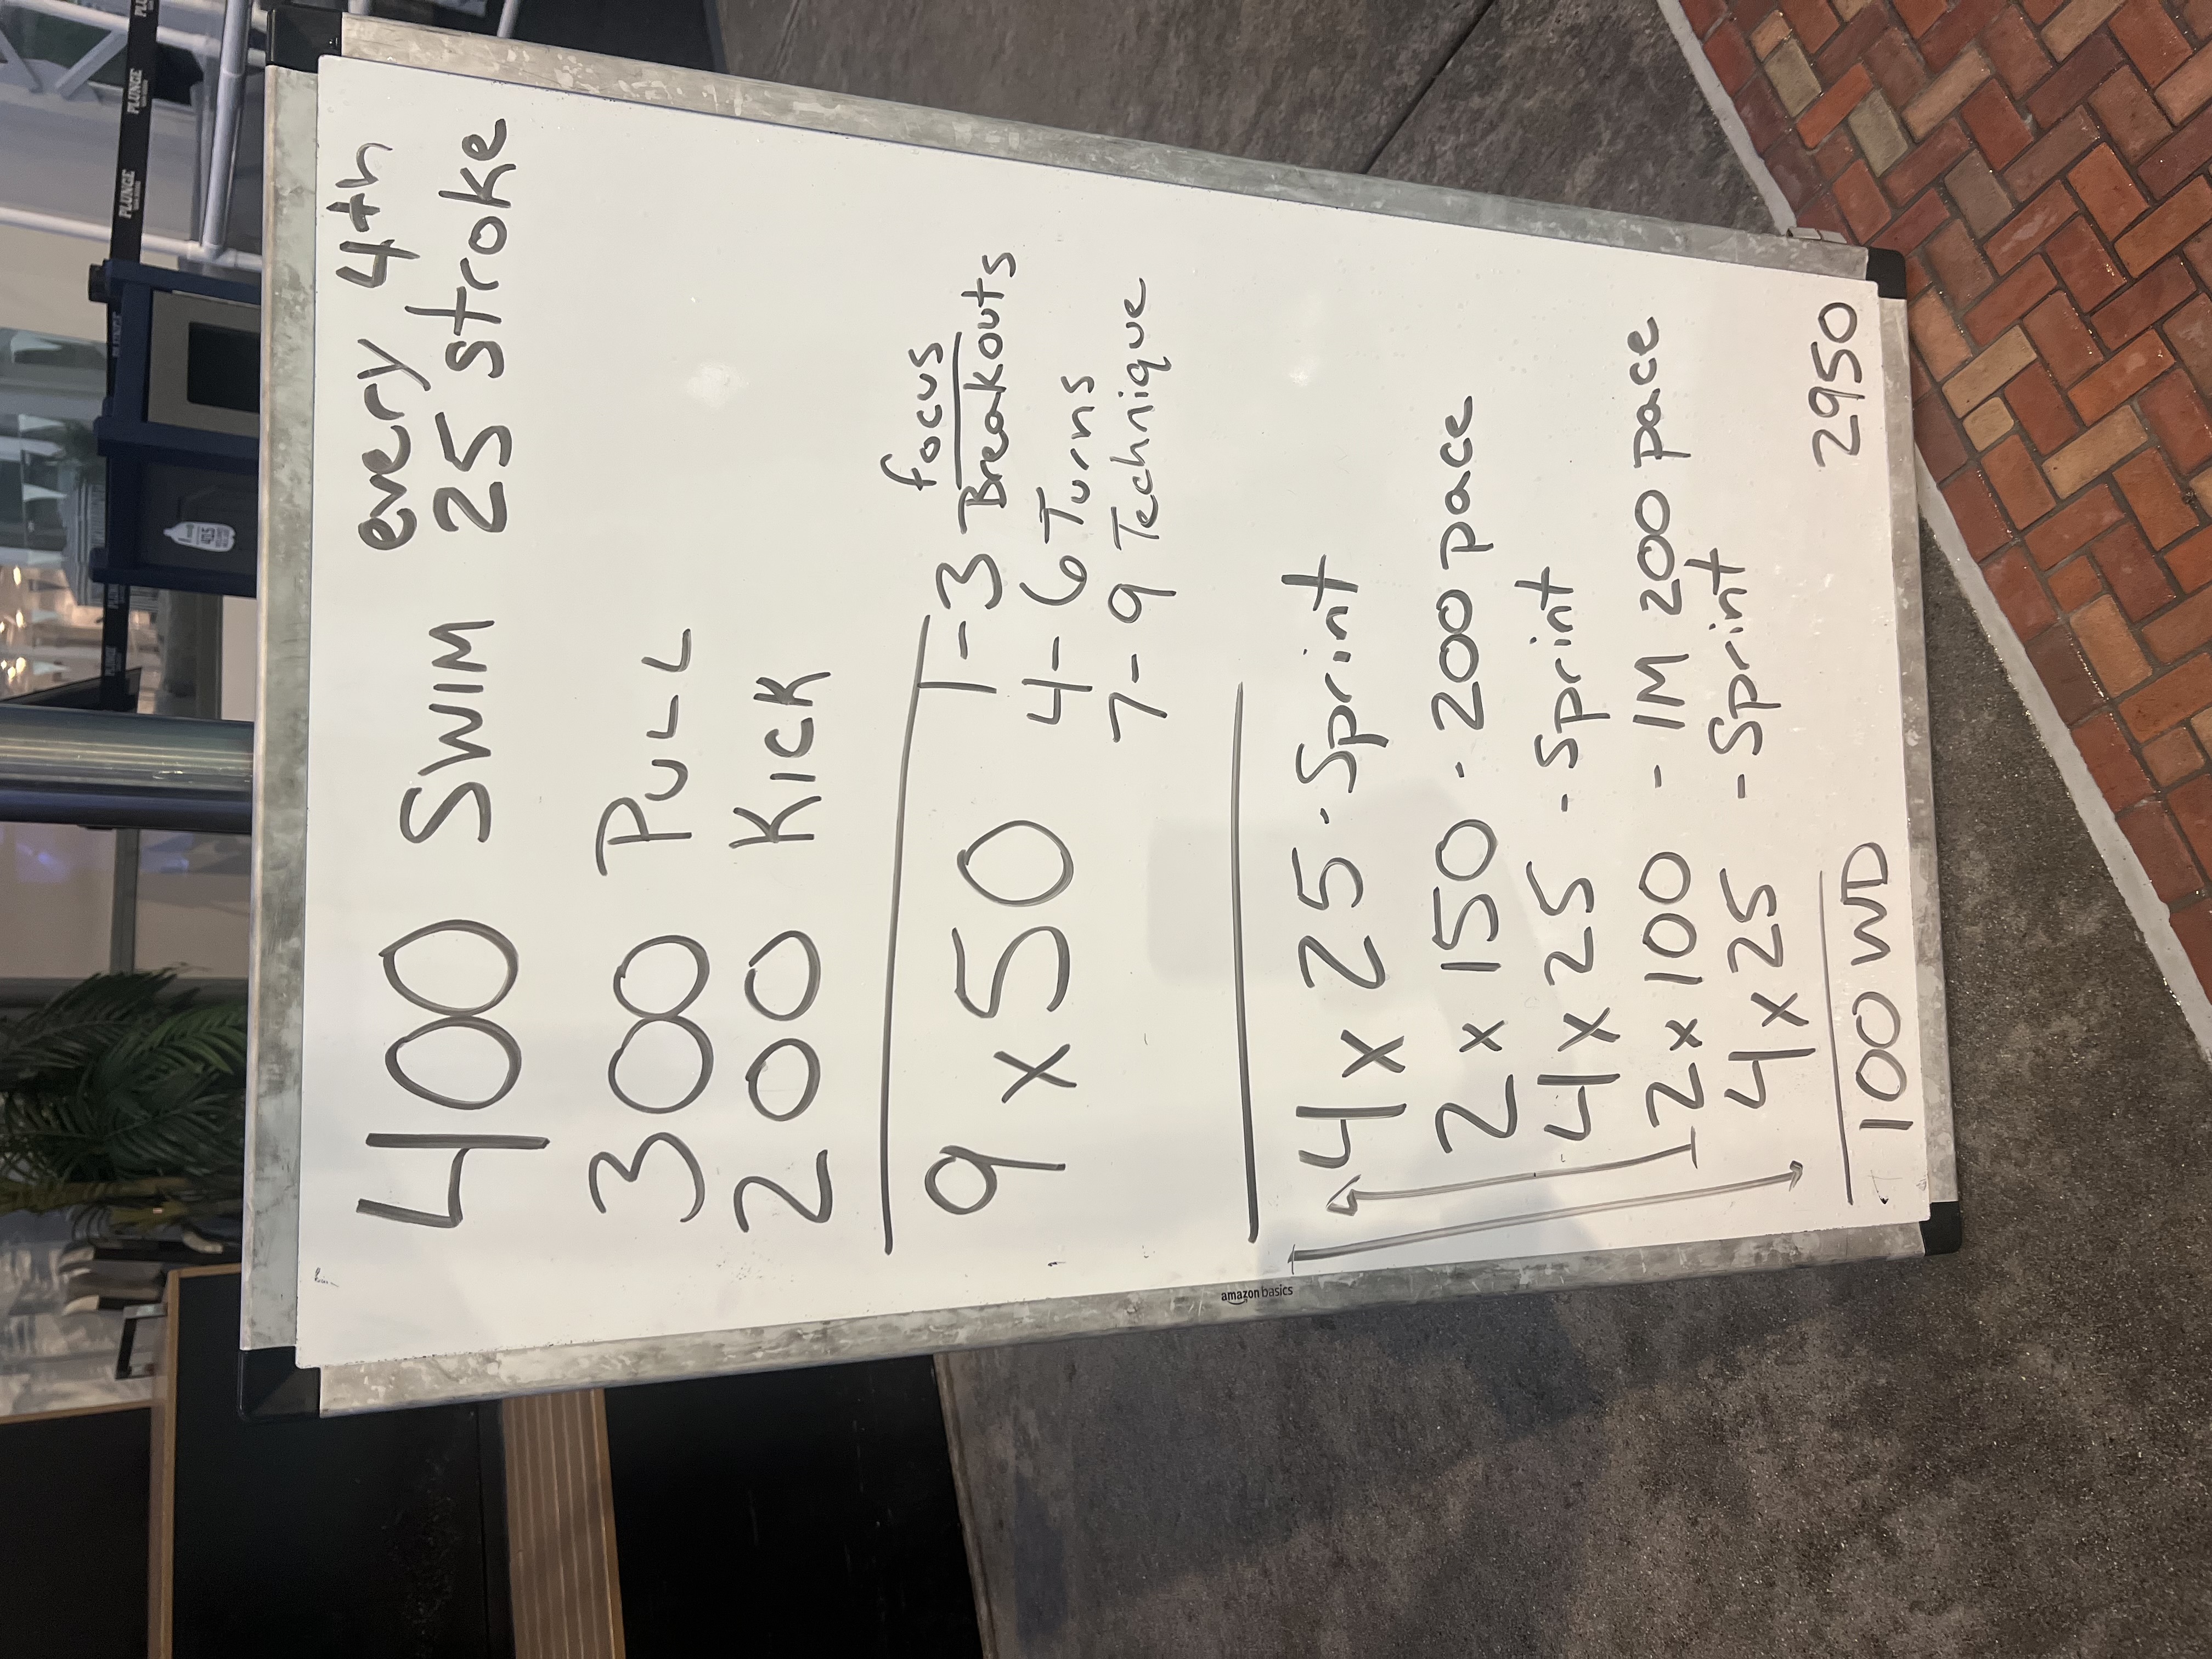 every 4th
400 SWIM 25 stroke
300 PULL
200 KICK
focus
9 x 50 1-3 Breakouts
4-6 Turns
7-9 Technique
4 x 25 - Sprint
2 x 150 - 200 pace
4 x 25 - Sprint
2 x 100 - IM 200 pace
4 x 25 - Sprint
100 WD 2950
amazon basics
PLUNGE
PLUNGE
PLUNGE